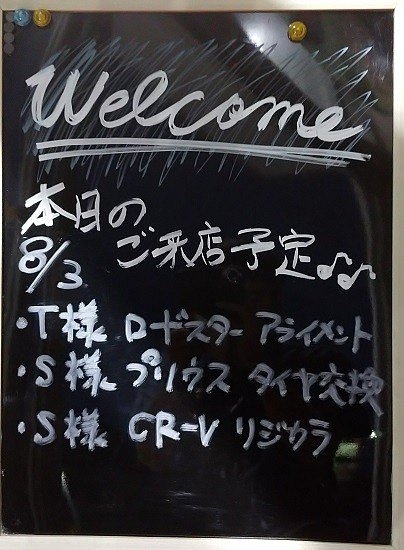 Welcome
本日の
8/3 ご来店予定♪♪
・T様 ロードスター アライメント
・S様 プリウス タイヤ交換
・S様 CR-V リジカラ